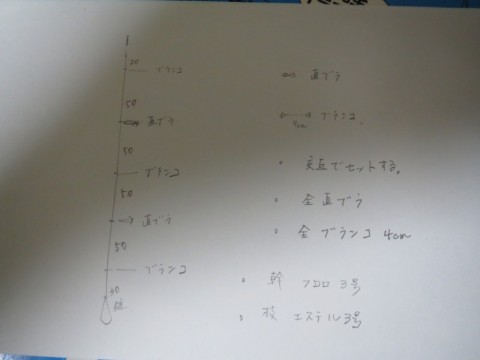 20
ブランコ
50
直ブラ
50
ブランコ
50
直ブラ
50
ブランコ
30
直ブラ
4cm ブランコ
・交互でセットする。
・全直ブラ
・全ブランコ 4cm
・幹 フロロ 3号
・枝 エステル3号